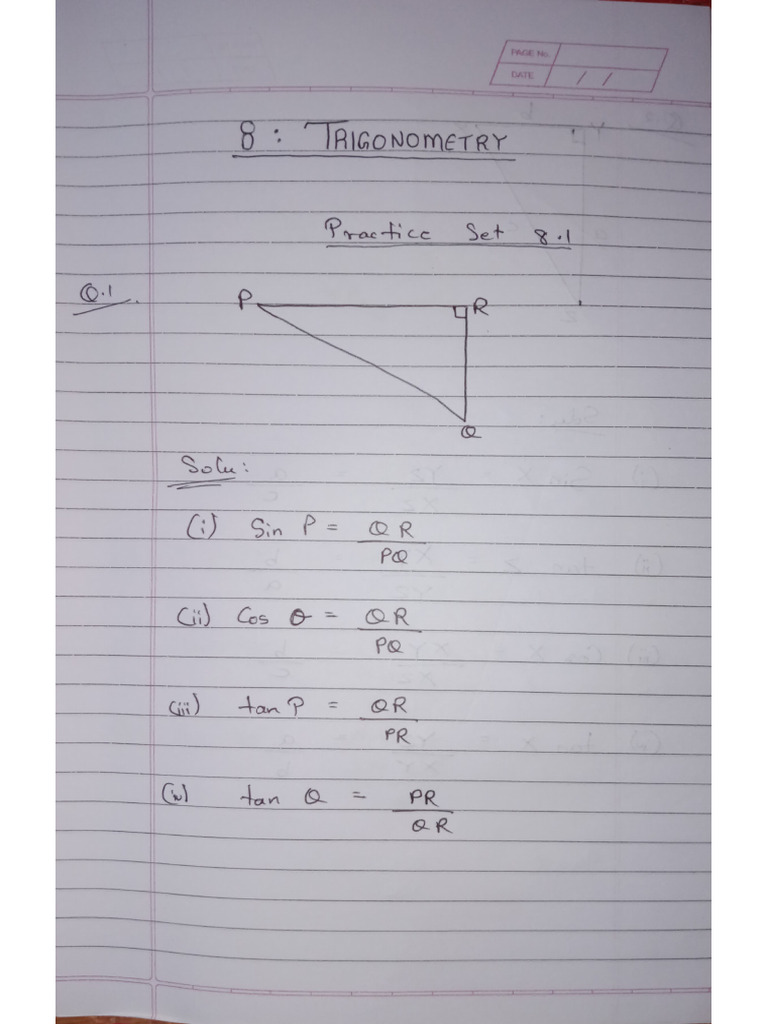 PAGE No.
DATE / /
8 : TRIGONOMETRY
Practice Set 8.1
Q.1
P R
Q
Solu :
(i) Sin P = QR / PQ
(ii) Cos θ = QR / PQ
(iii) tan P = QR / PR
(iv) tan Q = PR / QR